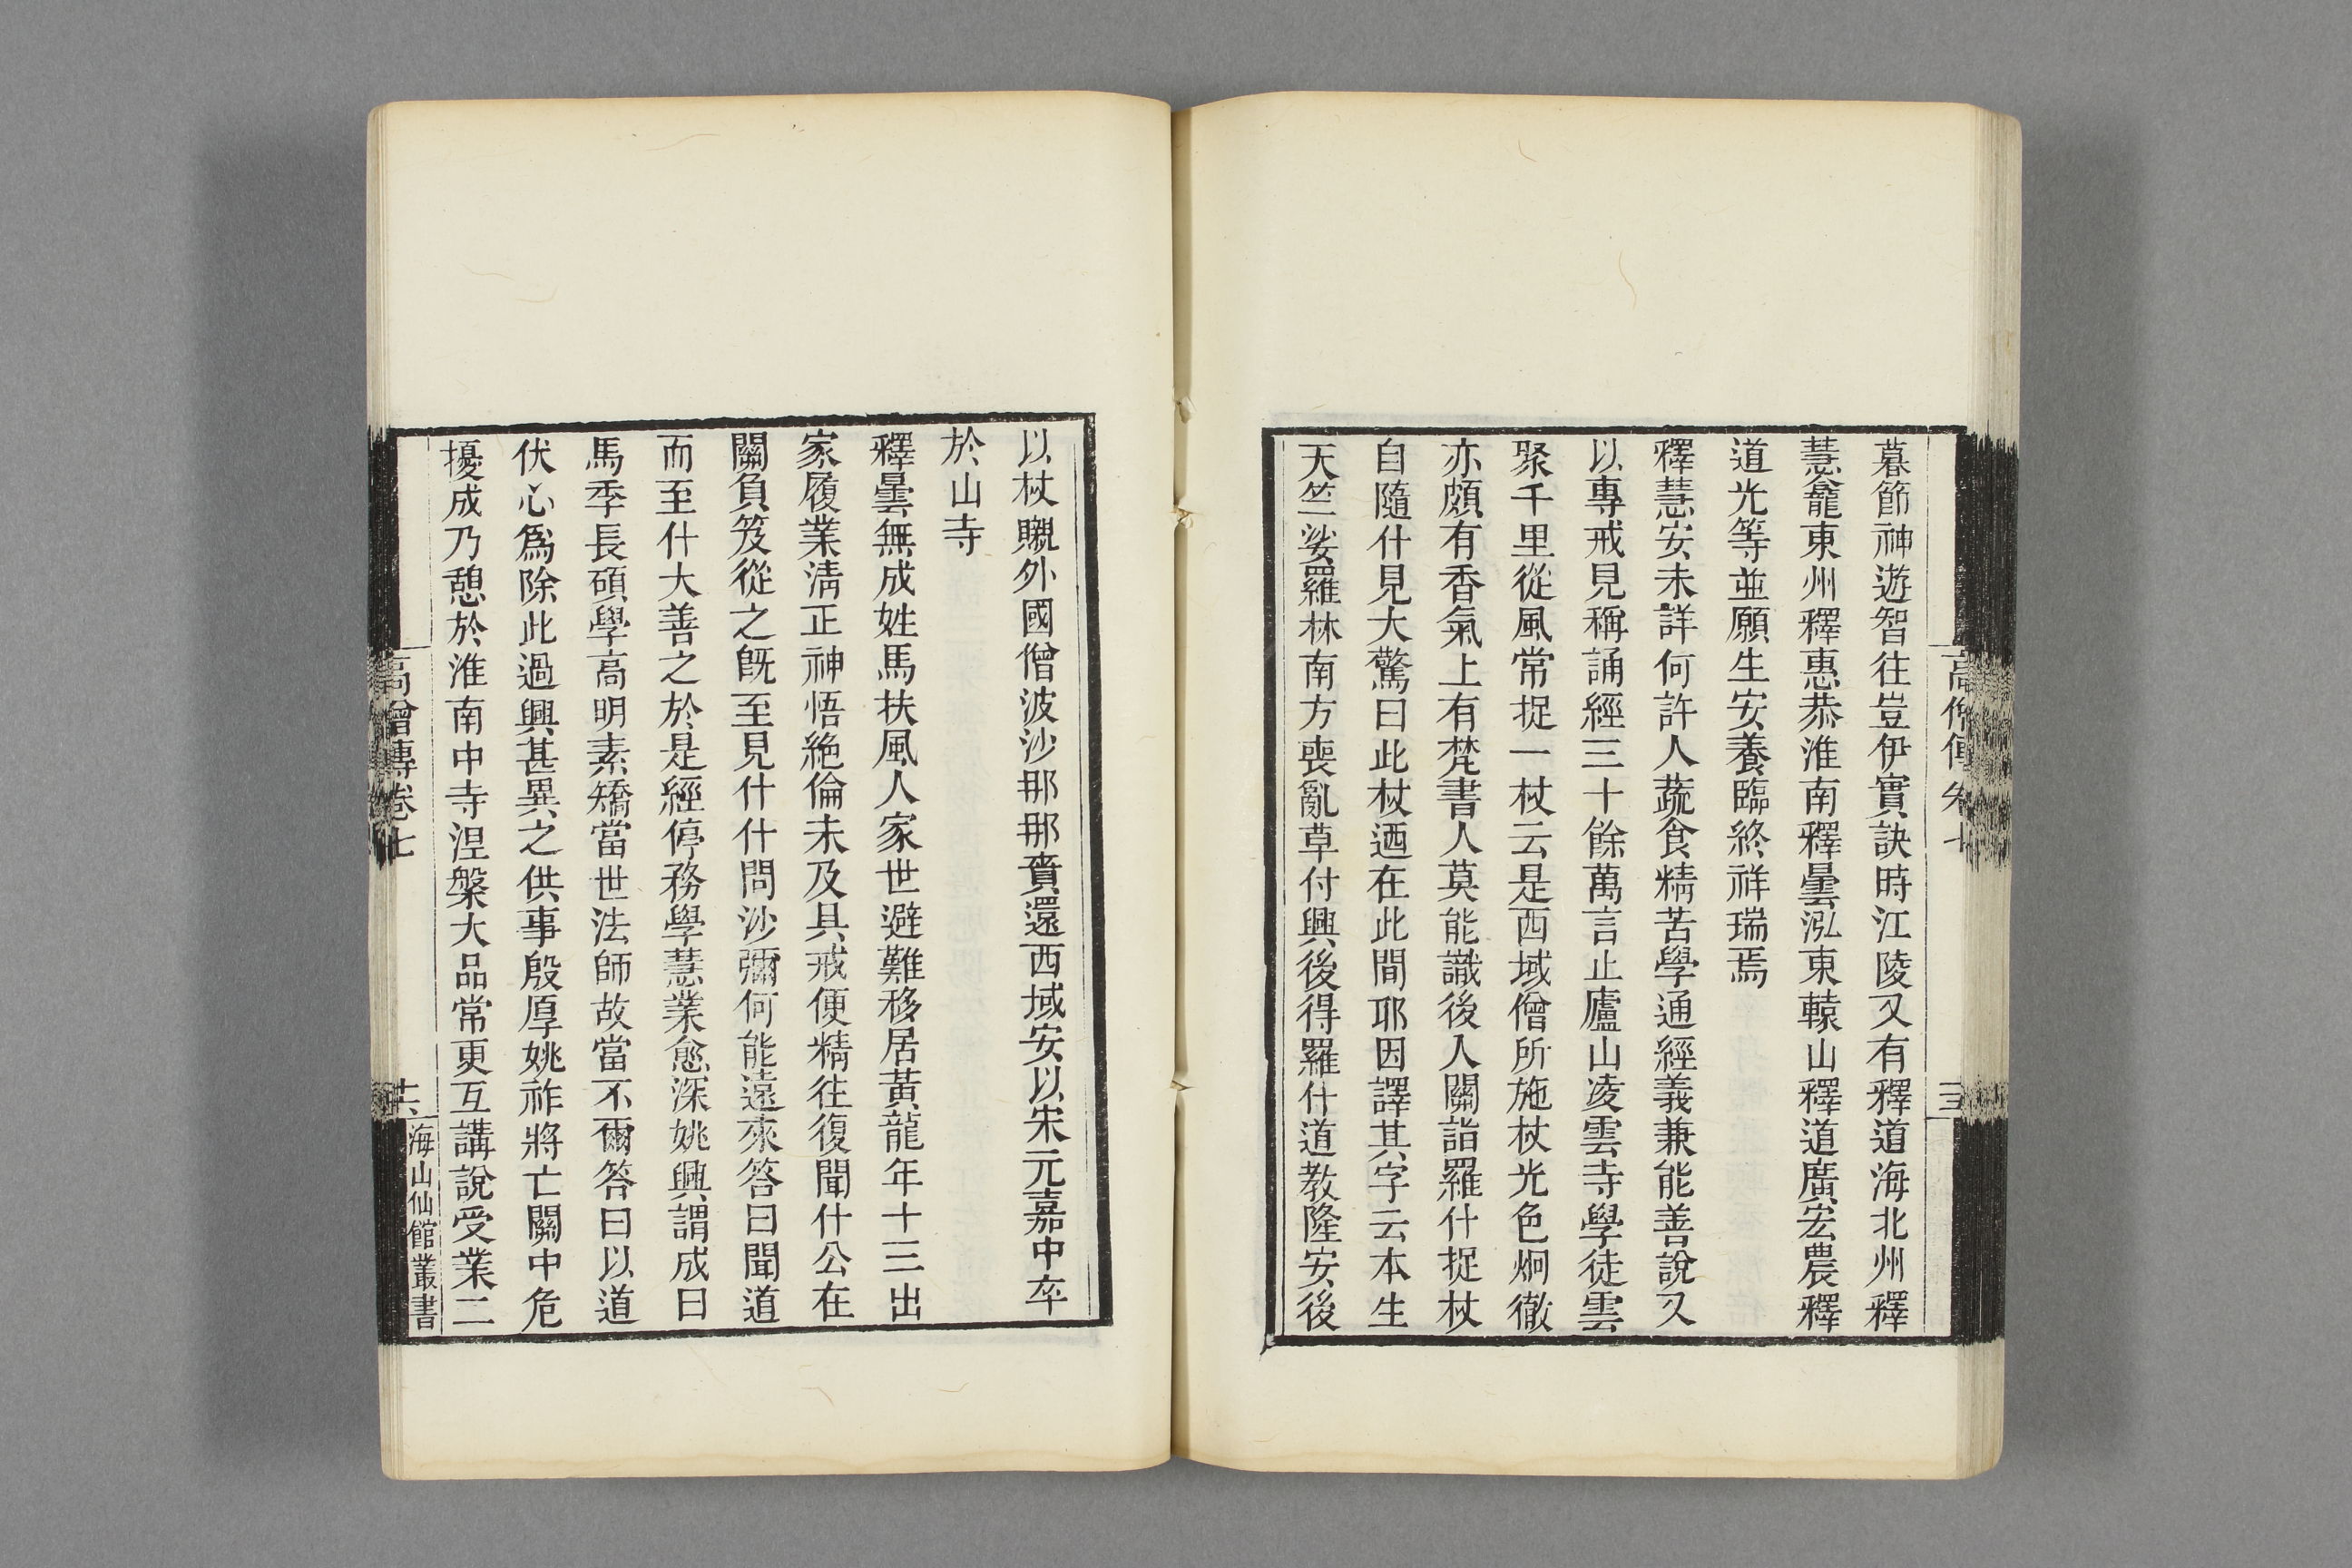 暮節神遊智往豈伊實訣時江陵又有釋道海北州釋
慧龕東州釋惠恭淮南釋曇泓東轅山釋道廣宏農釋
道光等並願生安養臨終祥瑞焉
釋慧安未詳何許人蔬食精苦學通經義兼能善說又
以專戒見稱誦經三十餘萬言止廬山凌雲寺學徒雲
聚千里從風常捉一杖云是西域僧所施杖光色炯徹
亦頗有香氣上有梵書人莫能識後入關詣羅什捉杖
自隨什見大驚曰此杖迺在此間耶因譯其字云本生
天竺娑羅林南方喪亂草付興後得羅什道教隆安後
以杖嚫外國僧波沙那那賷還西域安以宋元嘉中卒
於山寺
釋曇無成姓馬扶風人家世避難移居黃龍年十三出
家履業清正神悟絶倫未及具戒便精往復聞什公在
關負笈從之旣至見什什問沙彌何能遠來答曰聞道
而至什大善之於是經停務學慧業愈深姚興謂成曰
馬季長碩學高明素矯當世法師故當不爾答曰以道
伏心爲除此過興甚異之供事殷厚姚祚將亡關中危
擾成乃憩於淮南中寺涅槃大品常更互講說受業二
高僧傳卷七
海山仙館叢書